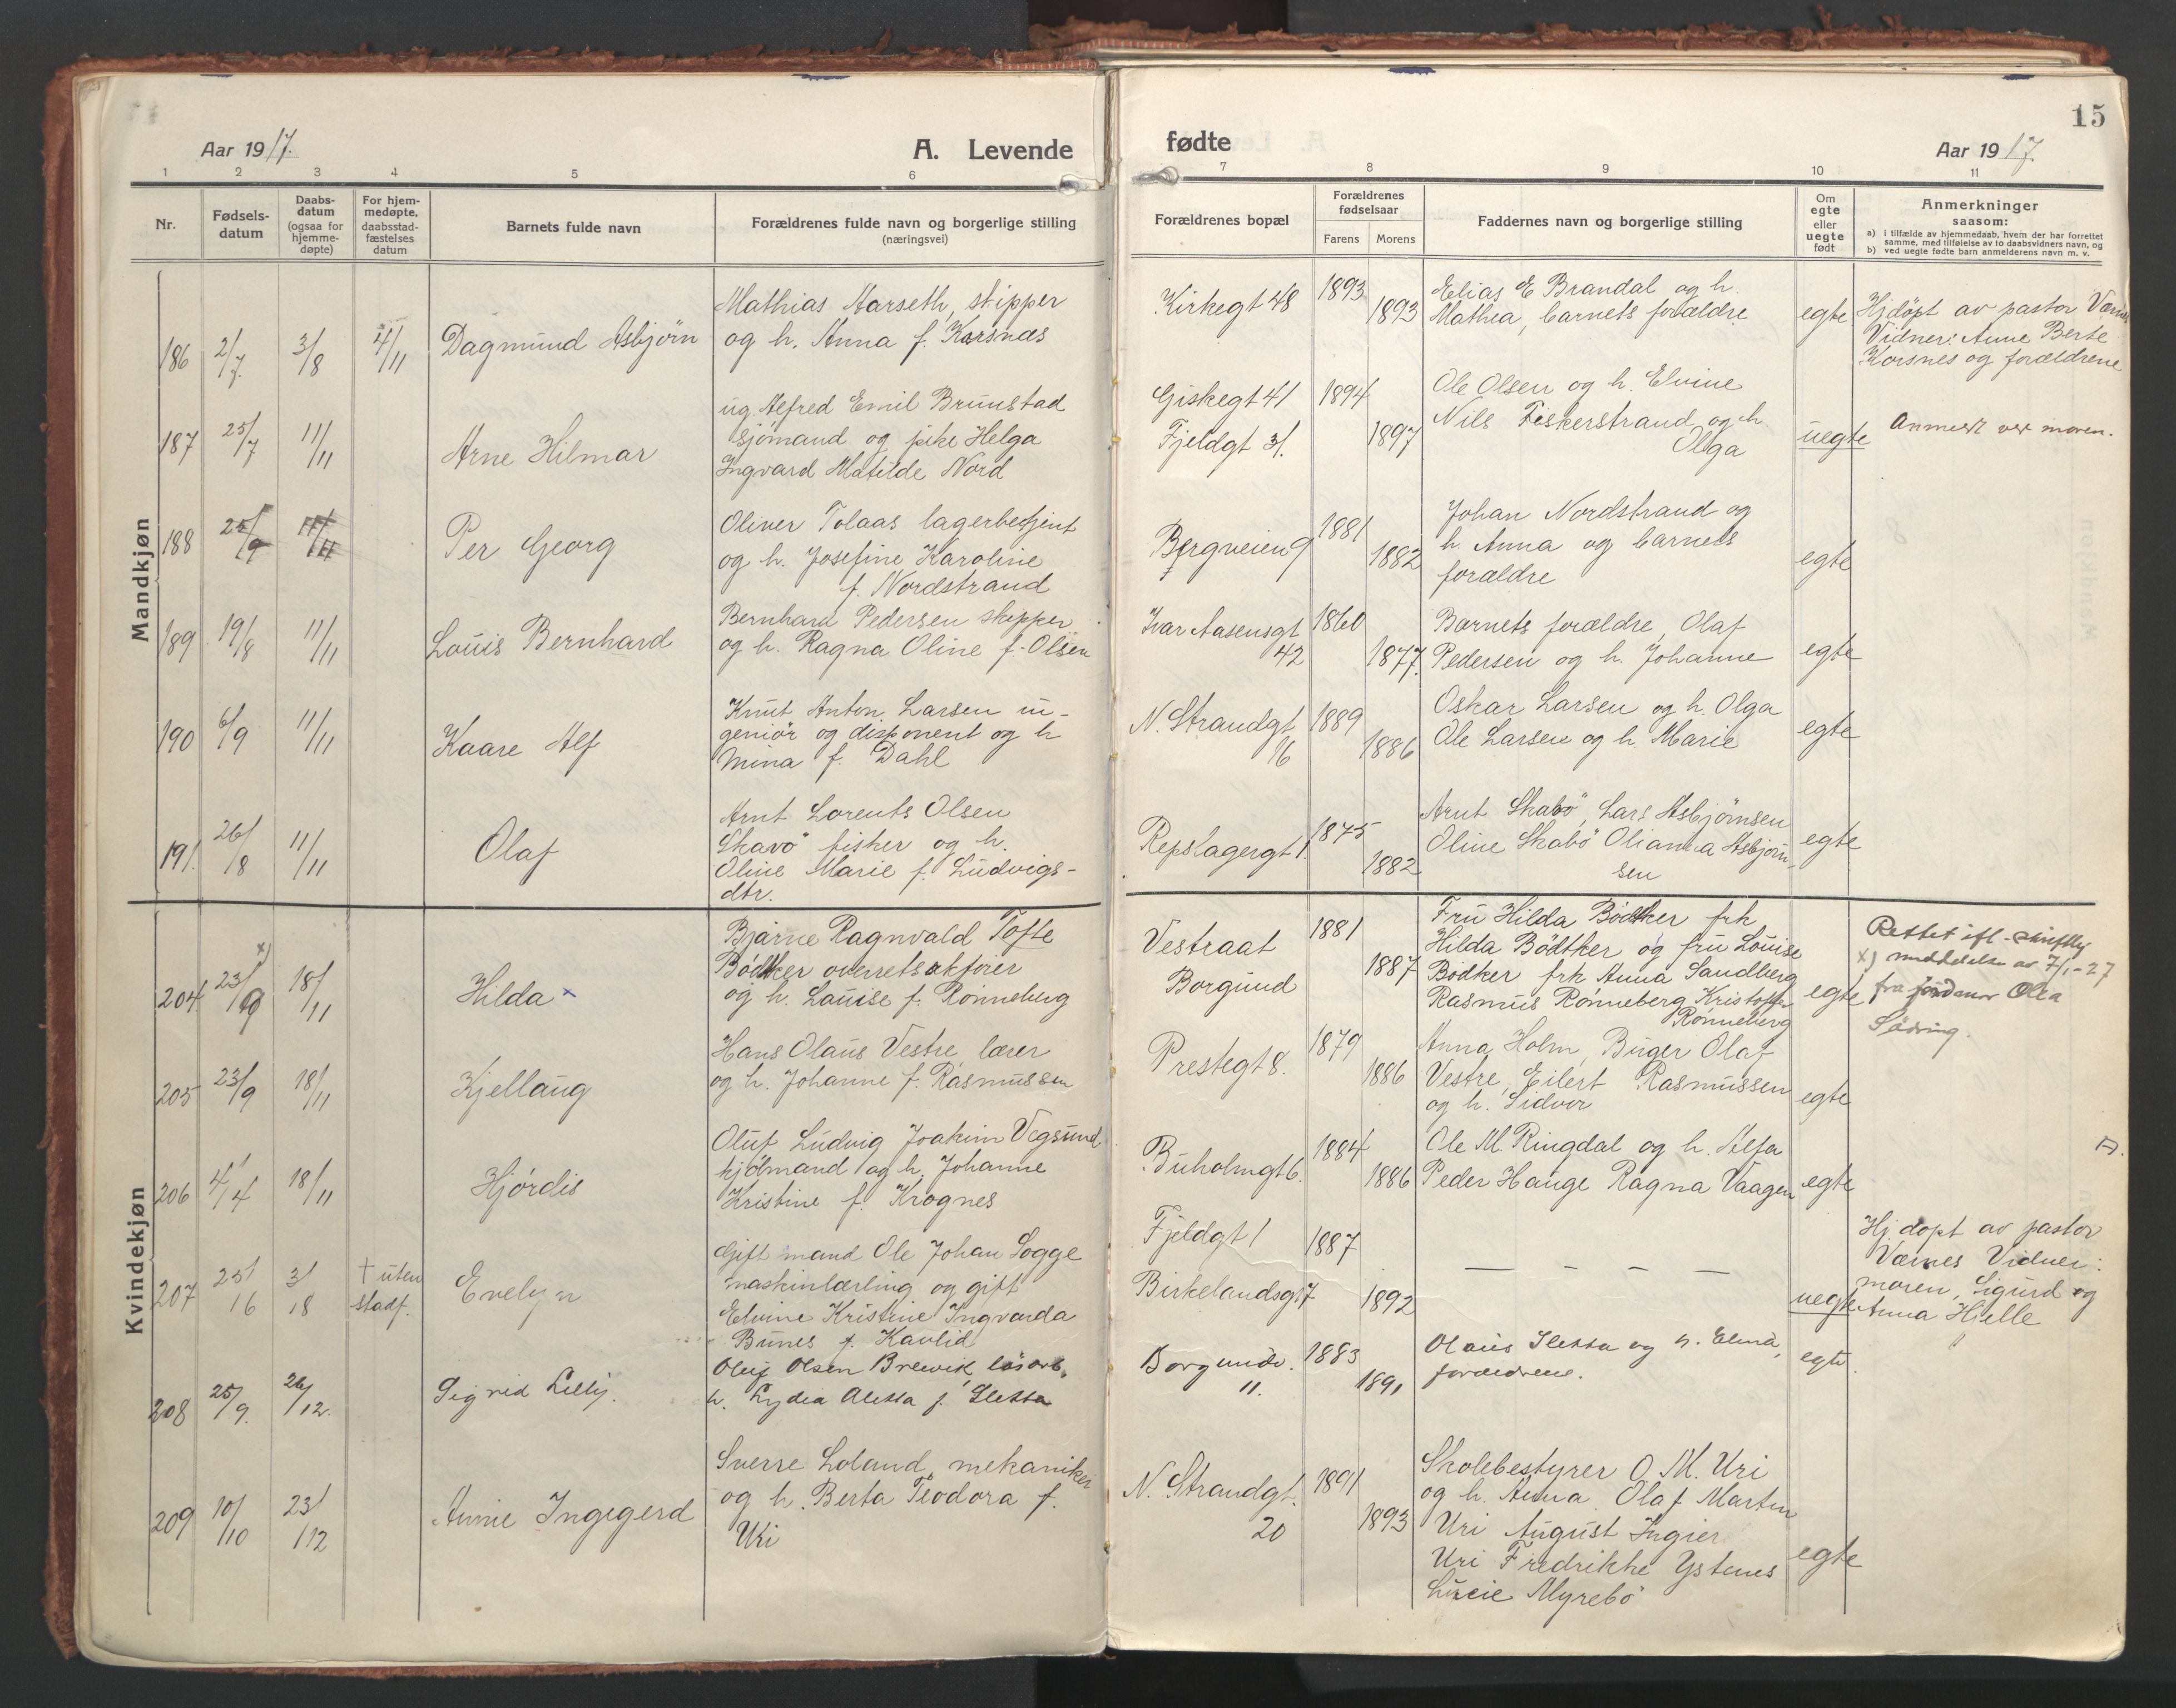 15
Aar 1917.
A. Levende
fødte
Aar 1917.
1 2 3 4 5 6 7 8 9 10 11
Nr.
Fødsels-
datum
Daabs-
datum
(ogsaa for
hjemme-
døpte)
For hjem-
medøpte,
daabsstad-
fæstelses
datum
Barnets fulde navn
Forældrenes fulde navn og borgerlige stilling
(næringsvei)
Forældrenes bopæl
Forældrenes
fødselsaar
Farens Morens
Faddernes navn og borgerlige stilling
Om
egte
eller
uegte
født
Anmerkninger
saasom:
a) i tilfælde av hjemmedaab, hvem der har forrettet
samme, med tilføielse av to daabsvidners navn, og
b) ved uegte fødte barn anmelderens navn m. v.
Mandkjøn
186 2/7. 3/8 4/11 Dagmund Asbjörn
Mathias Aarseth, skipper
og h. Anna f. Korsnæs
Kirkegt 48 1893 1893
Elias E Brandal og h.
Mathea, barnets forældre
egte
Hjdöpt av pastor Værnes
Vidner: Anne Berte
Korsnes og forældrene
187 25/7 11/11 Arne Hilmar
ug. Alfred Emil Brunstad
sjömand og pike Helga
Ingvard Matilde Nord
Giskegt 41 1894
Fjeldgt 31. 1897
Ole Olsen og h. Elvine
Nils Fiskerstrand og h.
Olga
uegte
Anmeldt ved moren.
188 25/9 11/11 Per Georg
Oliver Tolaas lagerbetjent
og h. Josefine Karoline
f. Nordstrand
Bergveien 9 1881 1882
Johan Nordstrand og
h. Anna og barnets
forældre
egte
189 19/8 11/11 Louis Bernhard
Bernhard Pedersen skipper
og h. Ragna Oline f. Olsen
Ivar Aasensgt
42
1860 1877.
Barnets forældre, Olaf
Pedersen og h. Johanne
egte
190 6/9 11/11 Kaare Alf
Knut Anton Larsen in-
geniör og disponent og h
Mina f. Dahl
N. Strandgt
16
1889 1886
Oskar Larsen og h. Olga
Ole Larsen og h. Marie
egte
191. 26/8 11/11 Olaf
Arnt Lorents Olsen
Skavö fisker og h.
Oline Marie f. Ludvigs-
dtr.
Repslagergt 1. 1875 1882
Arnt Skabö, Lars Asbjörnsen
Oline Skabö Olianna Asbjörn-
sen
egte
Kvindekjøn
204. 23/9 x) 18/11 Hilda x
Bjarne Ragnvald Tofte
Bödtker overretssakfører
og h. Louise f. Rønneberg
Vestraat
Borgund
1881 1887
Fru Hilda Bödtker frk
Hilda Bödtker og fru Louise
Bödker frk Anna Sandberg
Rasmus Rønneberg Kristoffer
Rønneberg
egte
Rettet ifl. skriftlig
x) meddelelse av 7/1-27
fra jordmor Olea
Södring.
205 23/9 18/11 Kjellaug
Hans Olaus Vestre, lærer
og h. Johanne f. Rasmussen
Prestegt 8. 1879 1886
Anna Holm, Birger Olaf
Vestre, Eilert Rasmussen
og h. Sidvor
egte
206 4/4 18/11 Hjördis
Oluf Ludvig Joakim Vegsund
sjömand og h. Johanne
Kristine f. Krognes
Buholmgt 6. 1884 1886
Ole M. Ringdal og h. Alfa
Peder Hauge Ragna Vaagen
egte
207 25/6 3/8 † uten
stadf.
Evelyn
Gift mand Ole Johan Sogge
maskinlærling og gift
Elvine Kristine Ingvarda
Bunes f. Kavlid
Fjeldgt 1 1887
Birkelandsgt 7 1892
— – – —
uegte
Hj. döpt av pastor
Værnes Vidner:
moren, Sigurd og
Anna Hjelle
208 25/9. 26/12. Sigrid Lilly.
Oluf Olsen Brevik, løsarb.
h. Lydia Aletta f. Sletta
Borgundv.
11.
1883 1891
Olaus Sletta og h. Elma,
forældrene.
egte.
209 10/10 23/12 Annie Ingegerd
Sverre Loland, mekaniker
og h. Berta Teodora f.
Uri
N. Strandgt.
20
1891 1893
Skolebestyrer O. M. Uri
og h. Anna. Olaf Martin
Uri August Ingier
Uri Fredrikke Ystenes
Lucie Myrebö
egte